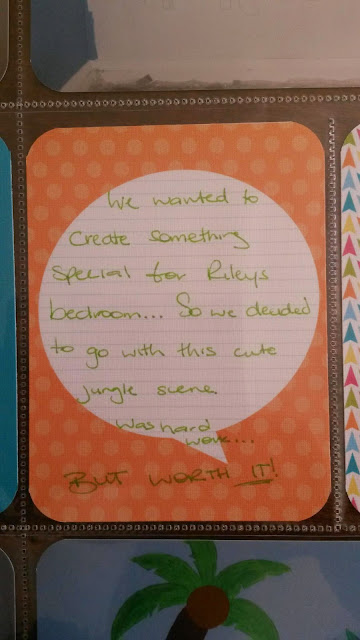 We wanted to
create something
special for Rileys
bedroom... So we decided
to go with this cute
jungle scene.
Was hard
work...
BUT WORTH IT!